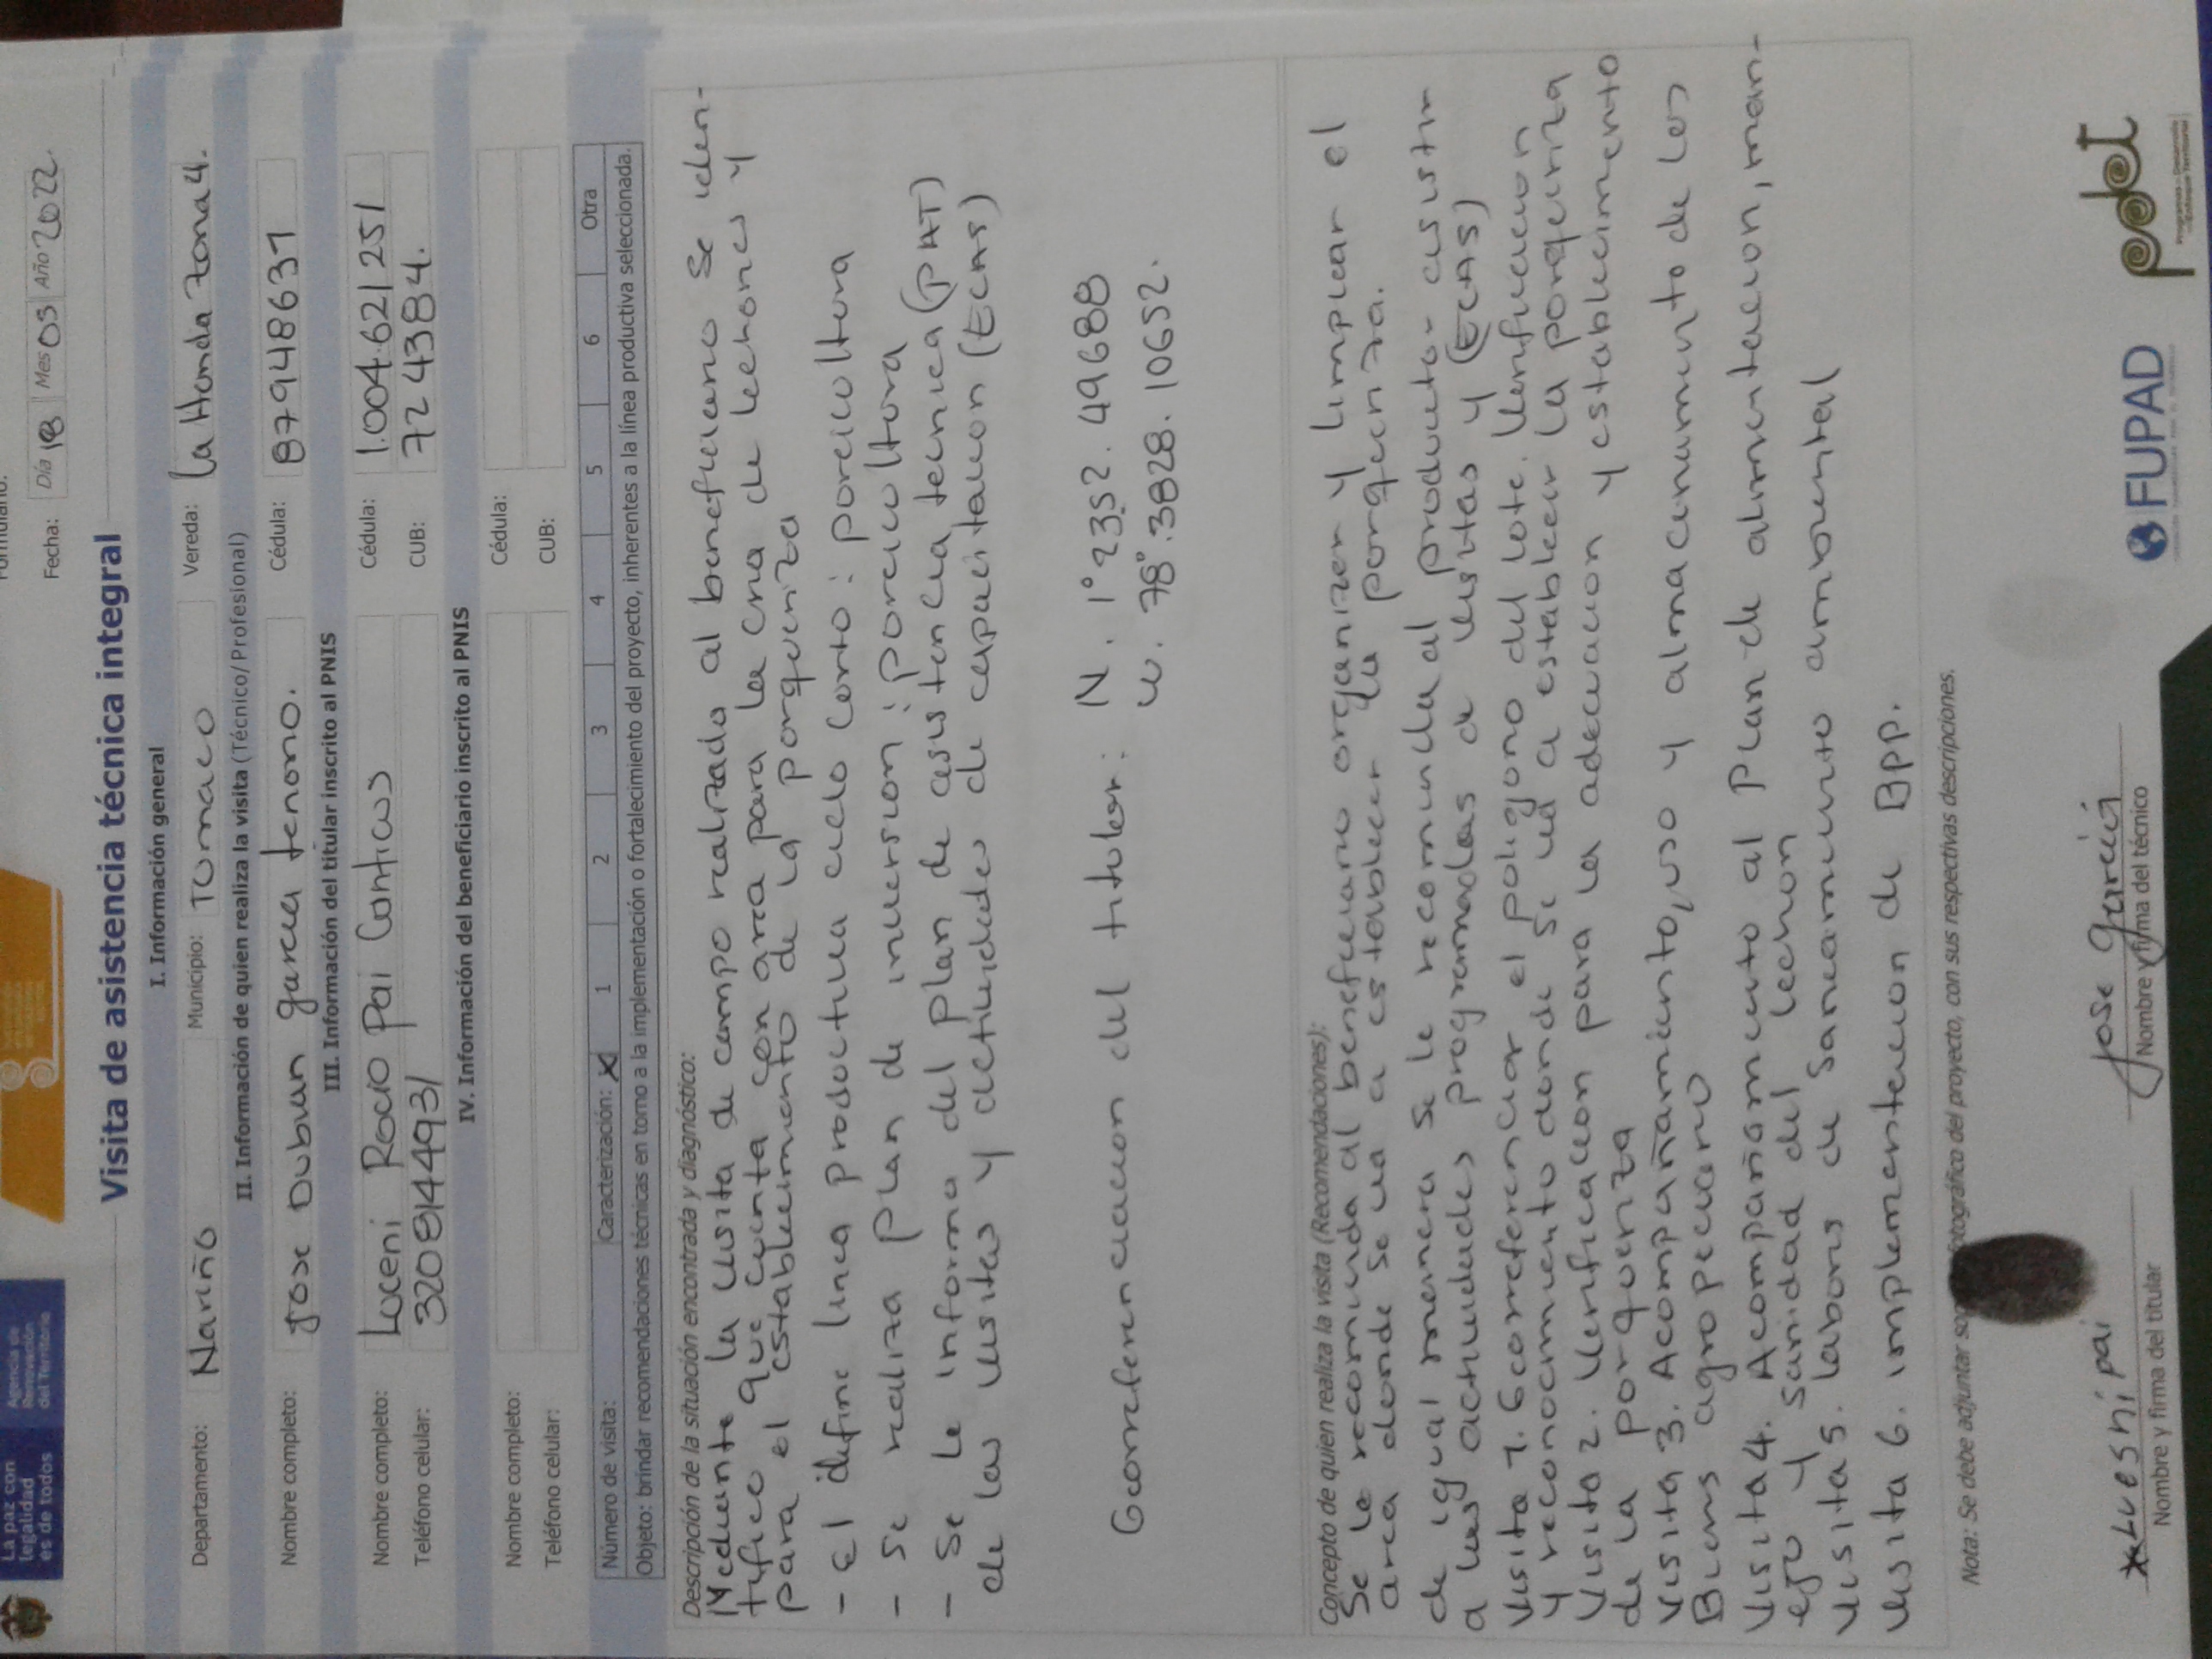 La paz con
legalidad
es de todos
Agencia de
Renovación
del Territorio
Fecha: Día 18 Mes 03 Año 2022.
Visita de asistencia técnica integral
I. Información general
Departamento: Nariño Municipio: Tumaco Vereda: La Honda zona 4.
II. Información de quien realiza la visita (Técnico/ Profesional)
Nombre completo: Jose Dubian garcia tenorio. Cédula: 87948631
III. Información del titular inscrito al PNIS
Nombre completo: Luceni Rocio Pai Canticus Cédula: 1.004.621251
Teléfono celular: 3208144931 CUB: 724384.
IV. Información del beneficiario inscrito al PNIS
Nombre completo: Cédula:
Teléfono celular: CUB:
Número de visita: Caracterización: X 1 2 3 4 5 6 Otra
Objeto: brindar recomendaciones técnicas en torno a la implementación o fortalecimiento del proyecto, inherentes a la línea productiva seleccionada.
Descripción de la situación encontrada y diagnóstico:
Mediante la visita de campo realizada al beneficiario se iden-
tifico que cuenta con area para la cria de lechones y
para el establecimiento de la porqueriza
- El define linea productiva ciclo corto: porcicultura
- Se realiza plan de inversion: porcicultura
- Se le informa del plan de asistencia tecnica (PAT)
de las visitas y actividades de capacitacion (ECAS)
Georreferenciacion del titular: N. 1°2352.49688
W. 78°.3828.10652.
Concepto de quien realiza la visita (Recomendaciones):
Se le recomienda al beneficiario organizar y limpiar el
area donde se va a establecer la porqueriza.
de igual manera se le recomienda al productor asistir
a las actividades programadas de visitas y (ECAS)
Visita 1. Georreferenciar el poligono del lote. Verificacion
y reconocimiento donde se va a establecer la porqueriza
Visita 2. Verificacion para la adecuacion y establecimiento
de la porqueriza
Visita 3. Acompañamiento, uso y almacenamiento de los
Biens agropecuario
Visita 4. Acompañamiento al Plan de alimentacion, man-
ejo y sanidad del lechon
Visita 5. labores de saneamiento ambiental
Visita 6. implementacion de BPP.
Nota: Se debe adjuntar fotográfico del proyecto, con sus respectivas descripciones.
Lucshi pai
Nombre y firma del titular
Jose Garcia
Nombre y firma del técnico
FUPAD
pdet